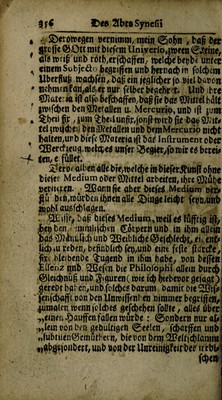 316 Des Abts Synesii
Derowegen vernimm, mein Sohn, daß der
große GOtt mit diesem Universo, zween Steine,
als weiß und roth, erschaffen, welche beyde unter
einem Subjecto begriffen und hernach in solchem
Uberfluß wachsen, daß ein jeglicher so viel davon
nehmen kan, als er nur selber begehret. Und ihre
Materia ist also beschaffen, daß sie das Mittel hält
zwischen den Metallen u. Mercurio, und ist zum
Theil fix, zum Theil unfix, sonst wird sie das Mit-
tel zwischen den Metallen und dem Mercurio nicht
halten, und diese Materia ist das Instrument oder
Werckzeug, welches unser Begier, so wir es berei-
ten, erfüllet.
Derohalben alle die, welche in dieser Kunst ohne
dieser Medium oder Mittel arbeiten, ihre Mühe
verlieren. Wann sie aber dieses Medium ver-
stünden, würden ihnen alle Dinge leicht seyn, und
wohl ausschlagen.
Wisset, daß dieses Medium, weil es lüfftig ist,
bey den himmlischen Cörpern und in ihm allein
das Männlich und Weibliche Geschlecht, eigent-
lich zu reden, befindlich sey, und eine feste starcke,
fix bleibende Tugend in ihm habe, von dessen
Essenz und Wesen die Philosophi allein durch
Gleichnüß und Figuren (wie ich hiebevor gesagt)
geredt haben, und solches darum, damit die Wis-
senschafft von den Unwissenden nimmer begriffen,
zumalen wenn solches geschehen sollte, alles über
„einen Hauffen fallen würde: Sondern nur al-
„lein von den gedultigen Seelen, scharffen und
„subtilen Gemüthern, die von dem Weltschlamm
„abgesondert, und von der Unreinigkeit des irrdi-
schen